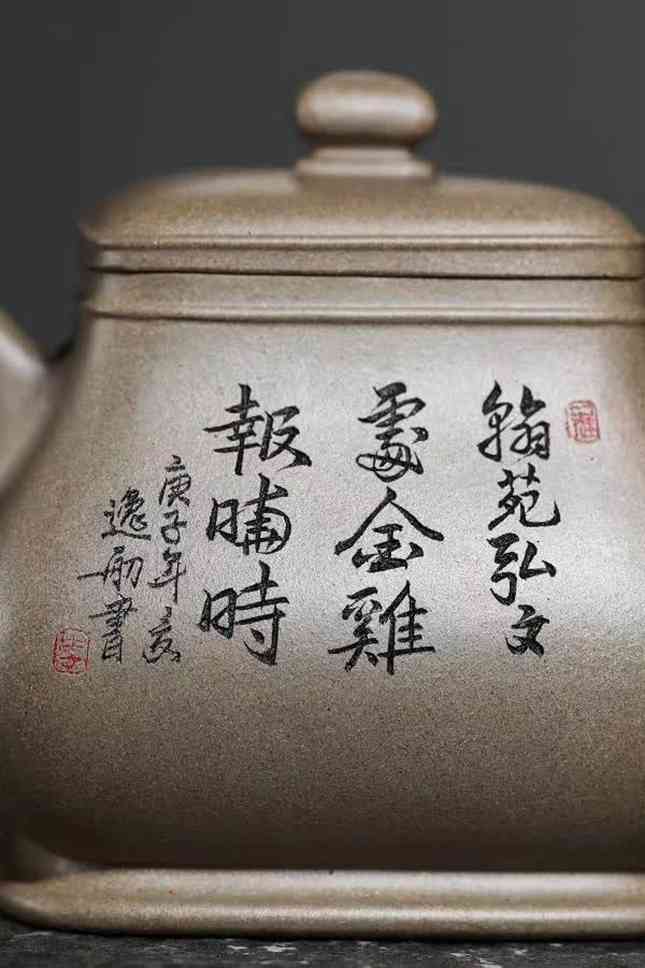 翰苑弘文
處金雞
報晡時
庚子年夏
逸書